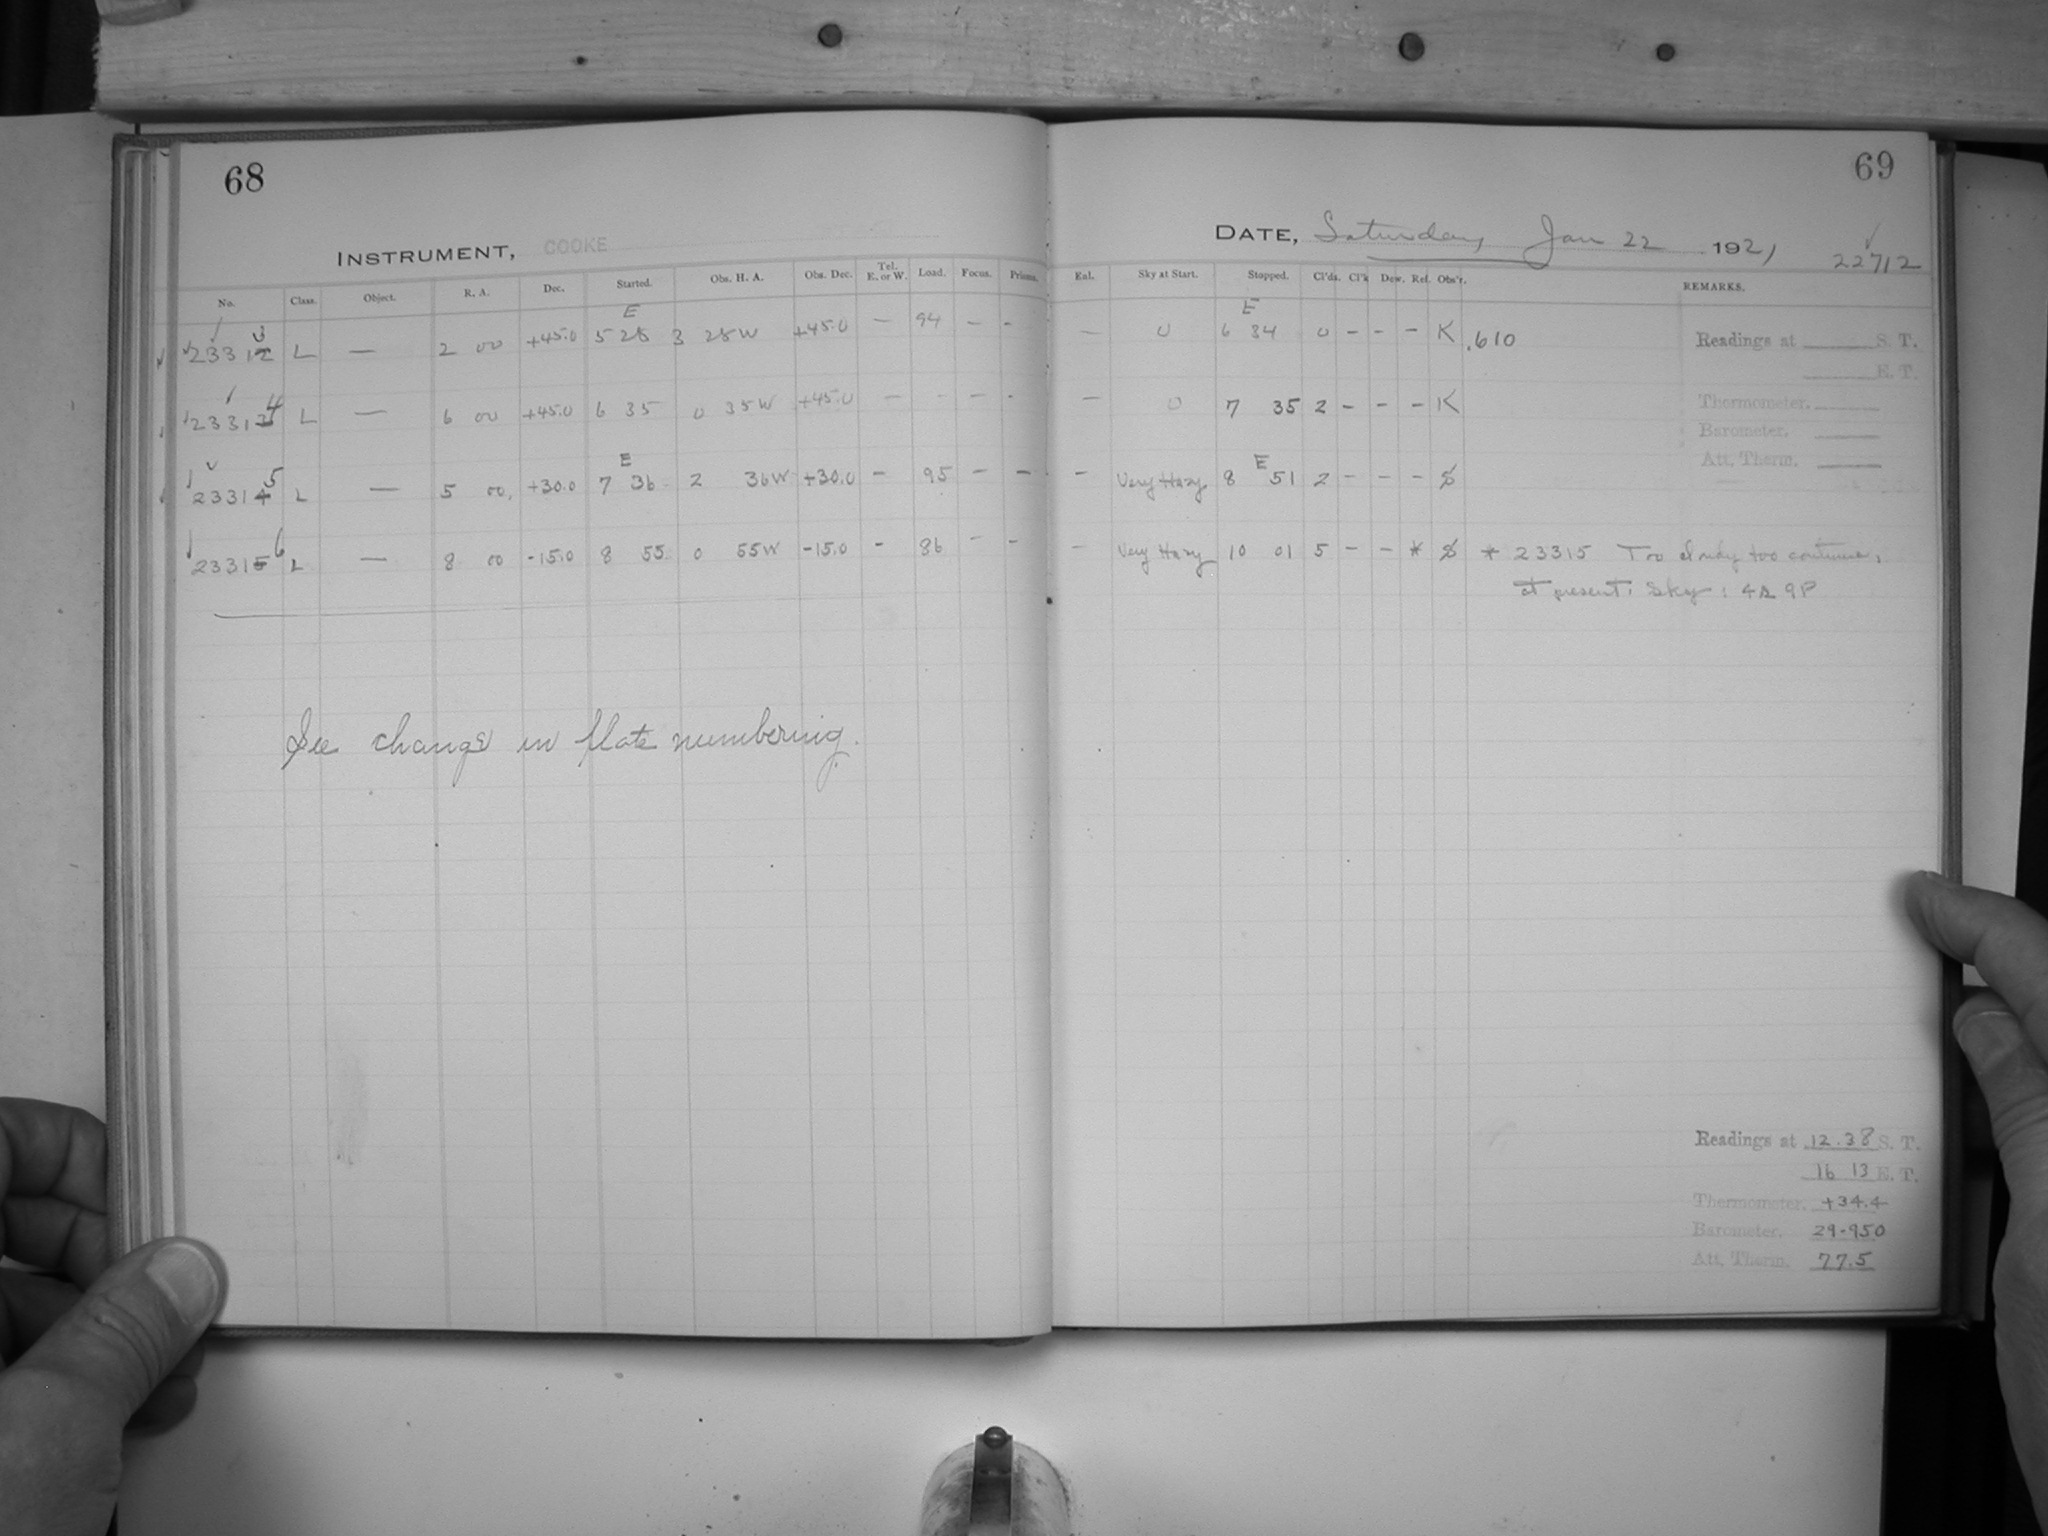 68
INSTRUMENT, COOKE
No. Class. Object. R. A. Dec. Started. Obs. H. A. Obs. Dec. Tel. E. or W. Load. Focus. Prisms.
E
23312 3 L — 2 00 +45.0 5 28 3 28W +45.0 — 94 – -
23313 4 L — 6 00 +45.0 6 35 0 35W +45.0 — - - -
E
23314 5 L — 5 00. +30.0 7 36 2 36W +30.0 - 95 - -
23315 6 L — 8 00 -15.0 8 55 0 55W -15.0 - 86 - -
See change in plate numbering.
69
DATE, Saturday Jan 22 1921
22712
Sky at Start. Stopped. Cl'ds. Cl'k Dew. Ref. Obs'r. REMARKS.
E
— 0 6 34 0 - - - K .610
— 0 7 35 2 - - - K
E
- Very Hazy 8 51 2 - - - $
- Very Hazy 10 01 5 - - * $ * 23315 Too cloudy too continue,
at present. Sky: 9P
Readings at S. T.
E. T.
Thermometer.
Barometer.
Att. Therm.
Readings at 12.38 S. T.
16 13 E. T.
Thermometer. +34.4
Barometer. 29.950
Att. Therm. 77.5